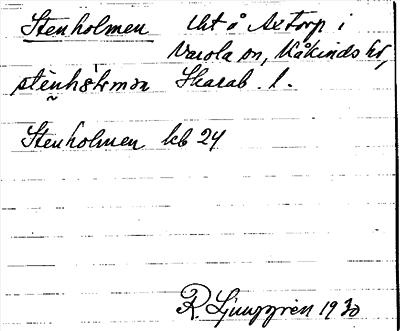 Stenholmen Ut å Axtorp i
Varola sn, Kåkinds hd,
Skarab. l.
Stenholmen kb 24
R. Ljunggren 1930